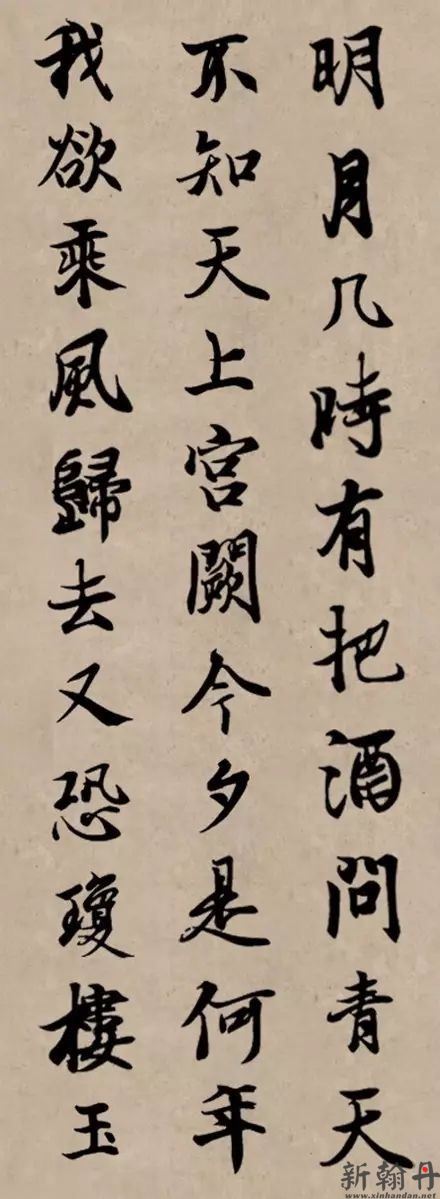 明月几時有把酒問青天
不知天上宮闕今夕是何年
我欲乘風歸去又恐瓊樓玉
新翰丹
www.xinhandan.net